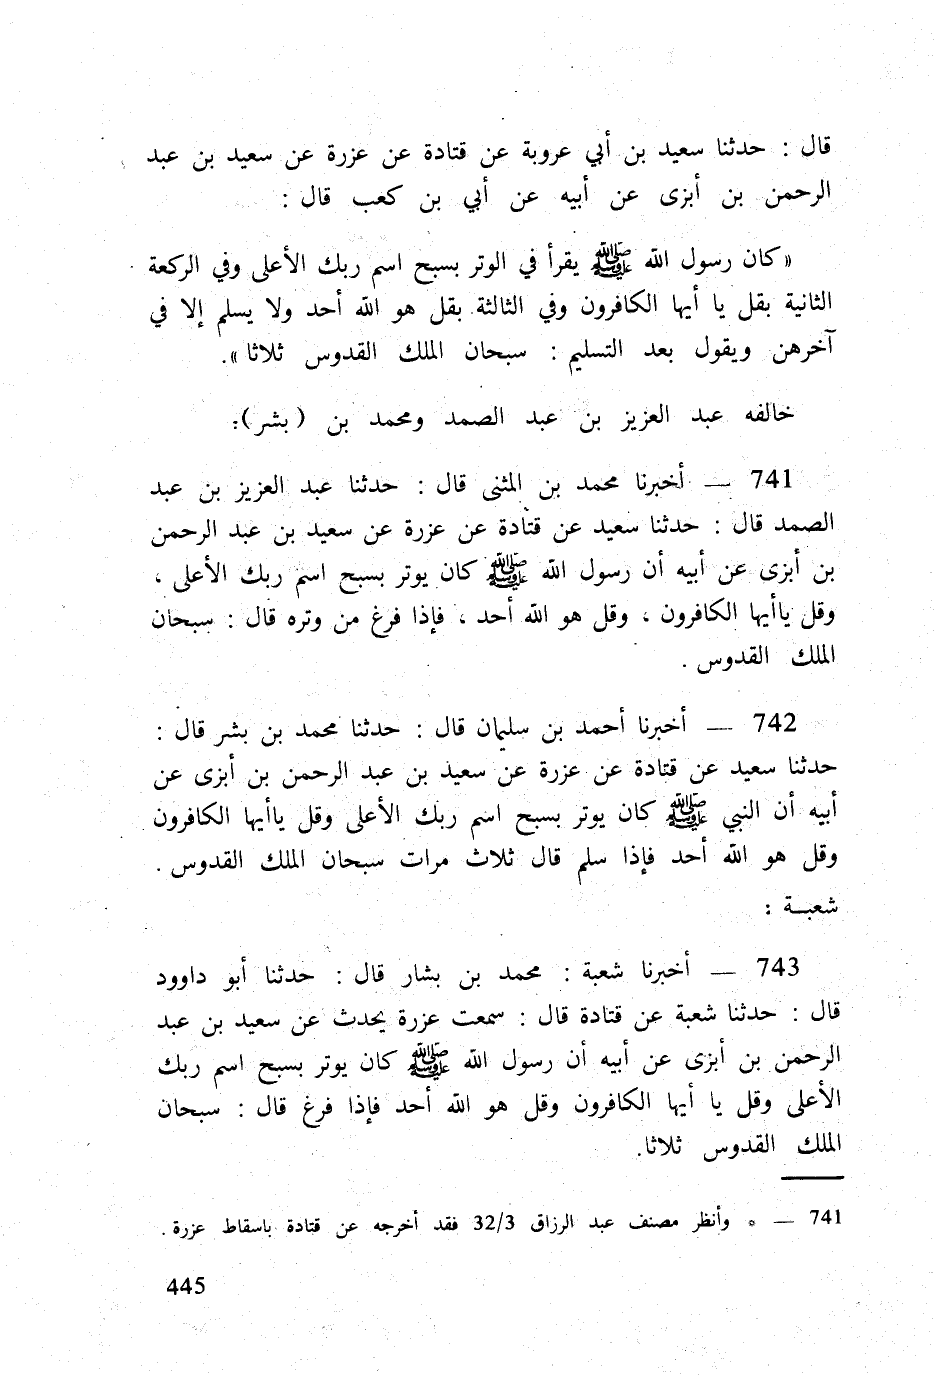 قال : حدثنا سعيد بن أبي عروبة عن قتادة عن عزرة عن سعيد بن عبد
الرحمن بن أبزى عن أبيه عن أبي بن كعب قال :
« كان رسول الله ﷺ يقرأ في الوتر بسبح اسم ربك الأعلى وفي الركعة
الثانية بقل يا أيها الكافرون وفي الثالثة بقل هو الله أحد ولا يسلم إلا في
آخرهن ويقول بعد التسليم : سبحان الملك القدوس ثلاثا ».
خالفه عبد العزيز بن عبد الصمد ومحمد بن ( بشر ):
741 — أخبرنا محمد بن المثنى قال : حدثنا عبد العزيز بن عبد
الصمد قال : حدثنا سعيد عن قتادة عن عزرة عن سعيد بن عبد الرحمن
بن أبزى عن أبيه أن رسول الله ﷺ كان يوتر بسبح اسم ربك الأعلى ،
وقل ياأيها الكافرون ، وقل هو الله أحد ، فإذا فرغ من وتره قال : سبحان
الملك القدوس .
742 — أخبرنا أحمد بن سليمان قال : حدثنا محمد بن بشر قال :
حدثنا سعيد عن قتادة عن عزرة عن سعيد بن عبد الرحمن بن أبزى عن
أبيه أن النبي ﷺ كان يوتر بسبح اسم ربك الأعلى وقل ياأيها الكافرون
وقل هو الله أحد فإذا سلم قال ثلاث مرات سبحان الملك القدوس .
شعبــة :
743 — أخبرنا شعبة : محمد بن بشار قال : حدثنا أبو داوود
قال : حدثنا شعبة عن قتادة قال : سمعت عزرة يحدث عن سعيد بن عبد
الرحمن بن أبزى عن أبيه أن رسول الله ﷺ كان يوتر بسبح اسم ربك
الأعلى وقل يا أيها الكافرون وقل هو الله أحد فإذا فرغ قال : سبحان
الملك القدوس ثلاثا.
741 — ه وأنظر مصنف عبد الرزاق 32/3 فقد أخرجه عن قتادة باسقاط عزرة .
445